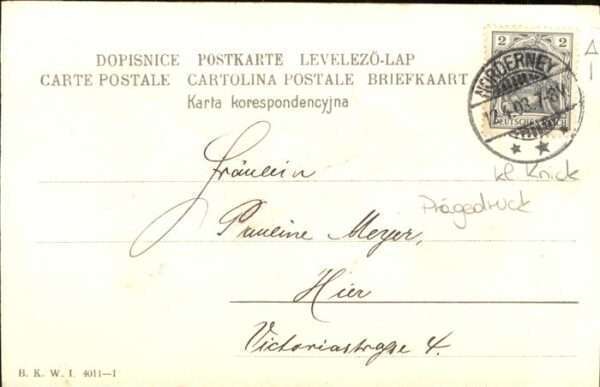 DOPISNICE POSTKARTE LEVELEZŐ-LAP
CARTE POSTALE CARTOLINA POSTALE BRIEFKAART
Karta korespondencyjna
2 2
NORDERNEY
12.4.03.7-8V
DEUTSCHES
kl Knick
Prägedruck
Fräulein
Pauline Meyer,
Hier
Victoriastraße 4.
B. K. W. I. 4011—1